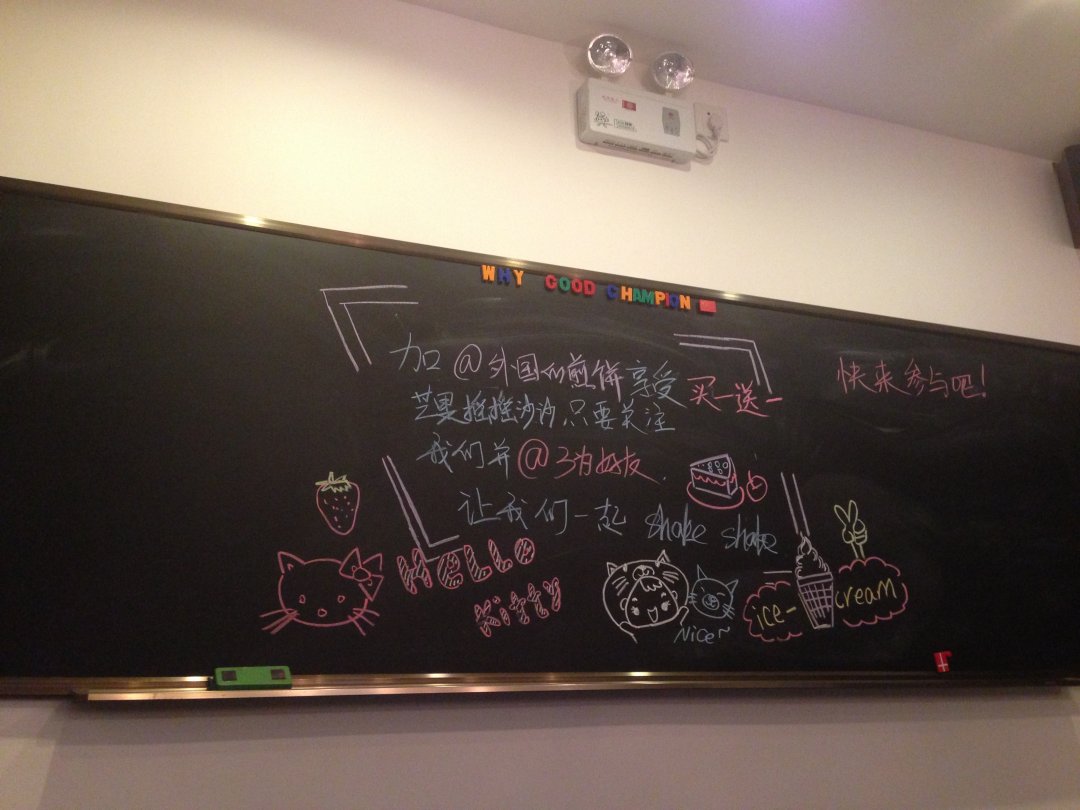 WHY GOOD CHAMPION
加@外国的煎饼享受买一送一
芝奥摇摇沙沙,只要关注
我们并@3为好友.
让我们一起 shake shake
快来参与吧!
HELLO
Kitty
Nice~
ice-cream